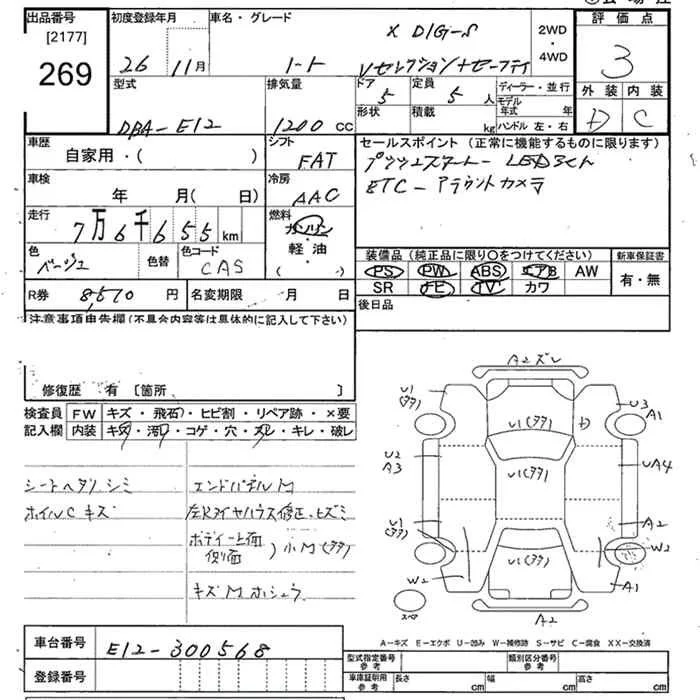 出品番号
[2177]
269
初度登録年月
26 11月
車名・グレード
X DIG-S
ノート Vセレクション+セーフティ
2WD
・
4WD
評価点
3
外装 内装
D C
型式
DBA-E12
排気量
1200 CC
ドア 5
形状
定員 5 人
積載 kg
ディーラー・並行
モデル年式 年
ハンドル 左・右
車歴
自家用・( )
シフト
FAT
車検
年 月( 日)
冷房
AAC
走行
7万6千655km
燃料
ガソリン
軽・油
( )
色
ベージュ
色替
色コード
CAS
R券 8,510 円
名変期限 月 日
セールスポイント (正常に機能するものに限ります)
プッシュスタート-LEDライト
ETC-アラウンドカメラ
装備品(純正品に限り○をつけてください)
PS PW ABS エアB AW
SR ナビ TV カワ
新車保証書
有・無
後日品
注意事項申告欄(不具合内容等は具体的に記入して下さい)
修復歴 有 〔箇所 〕
検査員 FW キズ・飛石・ヒビ割・リペア跡・×要
記入欄 内装 キズ・汚レ・コゲ・穴・スレ・キレ・破レ
シートヘタリ シミ
ホイルC キズ
エンドパネルM
左Rタイヤハウス修正、ヒズミ
ボディー上面
側面 )小M(タタ)
キズM ホシュウ
A2ズレ
U1
(タタ)
U3
A1
U1(タタ)
D
U2
A3
U1(タタ)
UA4
U1
(タタ)
A2
W2
U1(タタ)
W2
A1
A2
スペア
A-キズ E-エクボ U-凹み W-補修跡 S-サビ C-腐食 XX-交換済
車台番号 E12-300568
登録番号
型式指定番号
参考
類別区分番号
参考
車庫証明用
参考
長さ cm
幅 cm
高さ cm